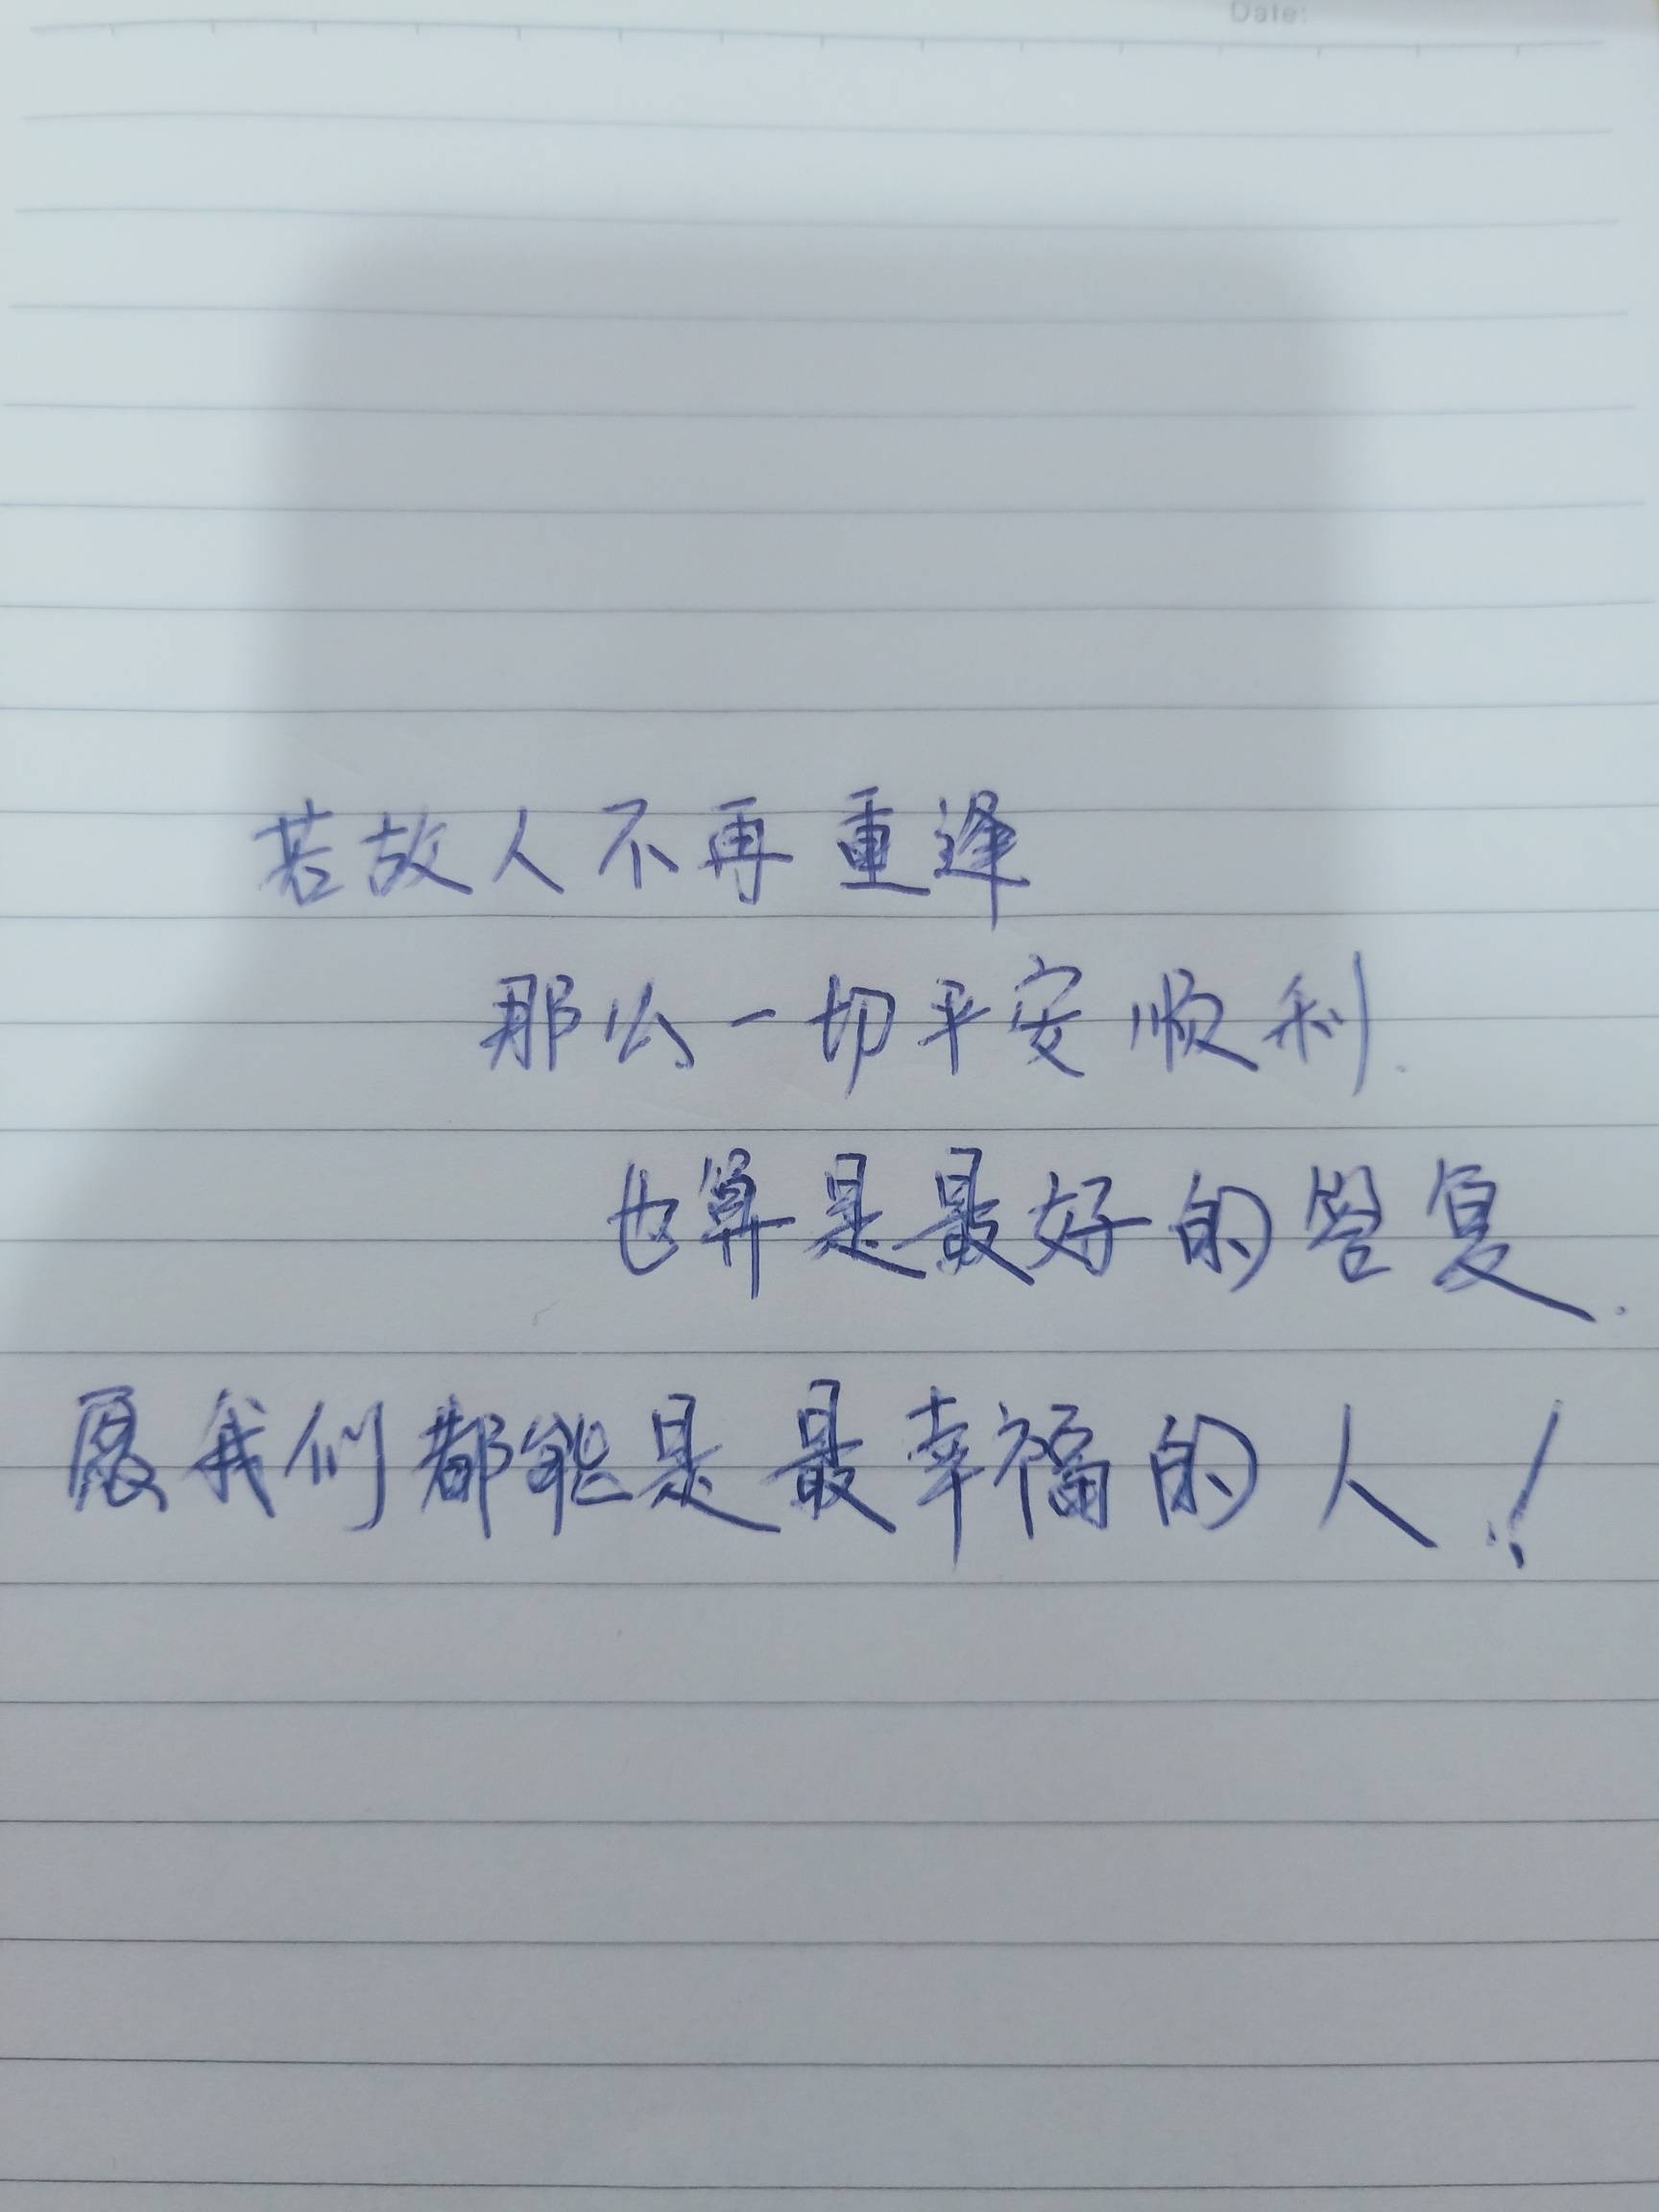 Date:
若故人不再重逢
那么一切平安顺利.
也算是最好的答复.
愿我们都能是最幸福的人!